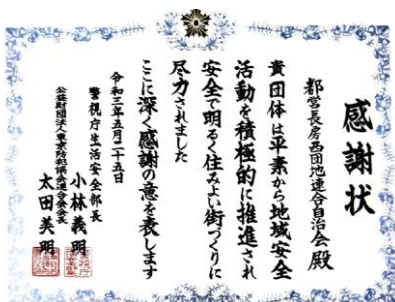 感謝状
都営長房西団地連合自治会殿
貴団体は平素から地域安全
活動を積極的に推進され
安全で明るく住みよい街づくりに
尽力されました
ここに深く感謝の意を表します
令和三年五月二十五日
警視庁生活安全部長
小林義明
公益財団法人東京防犯協会連合会会長
太田美明